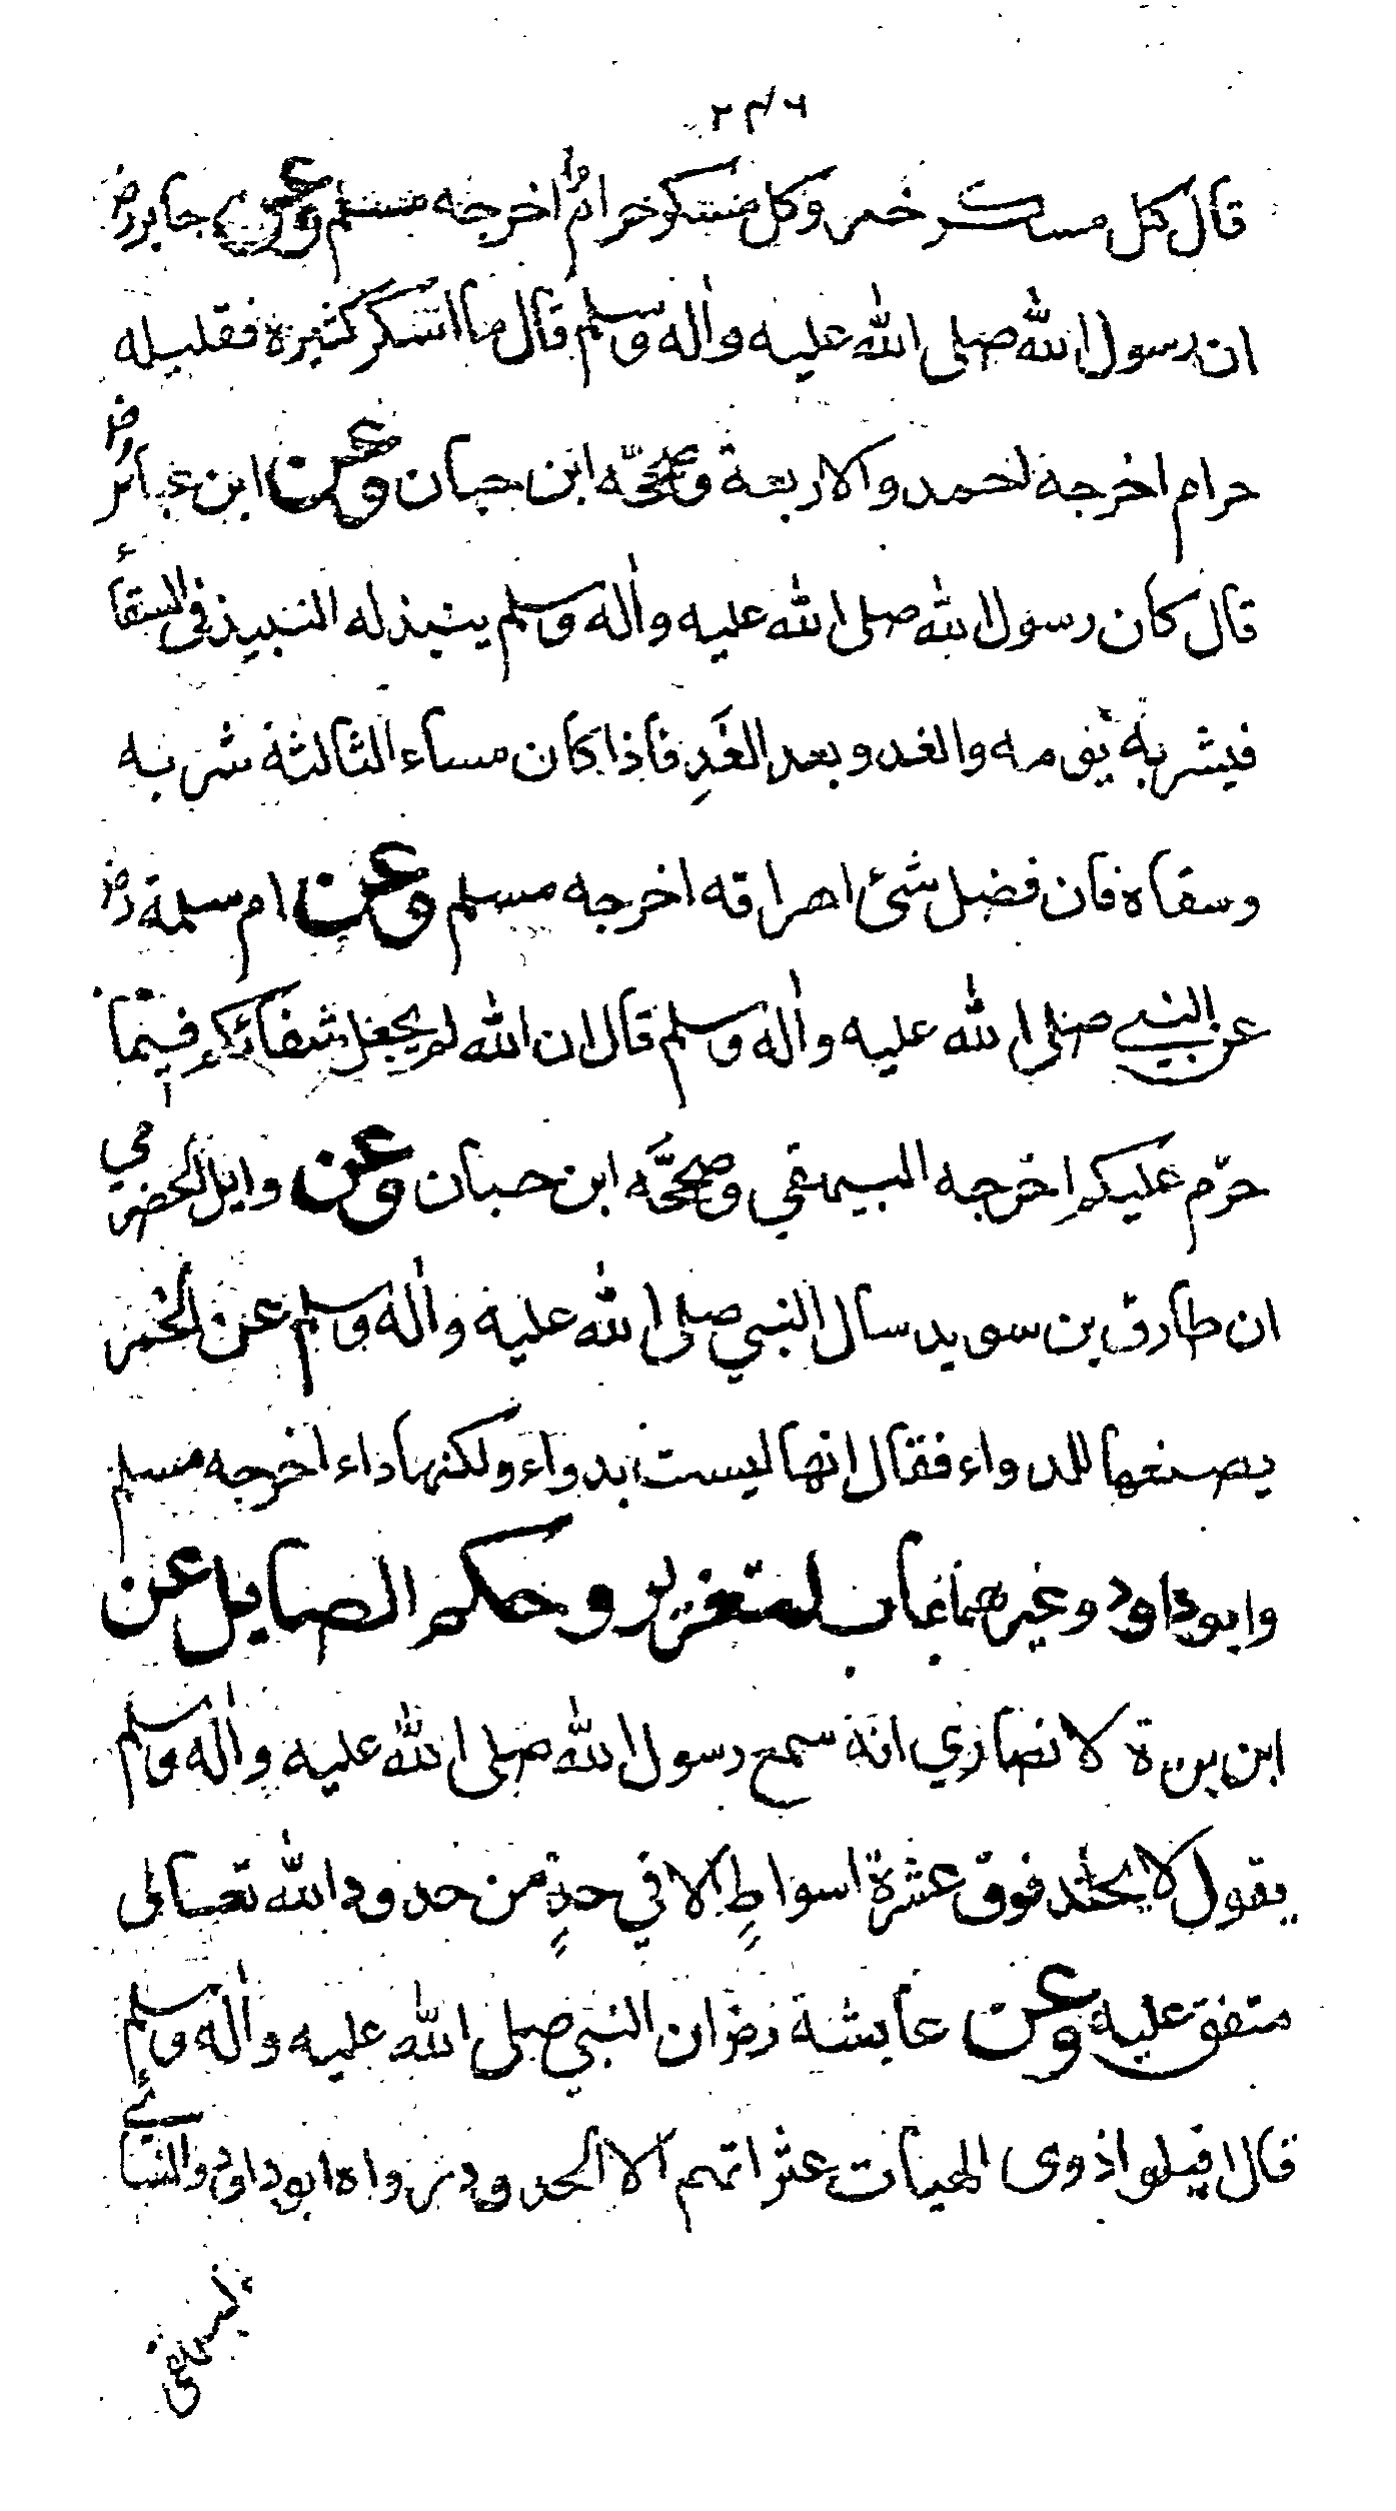 ٢٣٦
قال كل مسكر خمر وكل مسكر حرام اخرجه مسلم وعن جابر رض
ان رسول الله صلى الله عليه واله وسلم قال ما اسكر كثيرة فقليله
حرام اخرجه احمد والاربعة وصححه ابن حبان وعن ابن عباس رض
قال كان رسول الله صلى الله عليه واله وسلم ينبذ له النبيذ في السقاء
فيشربه يومه والغد وبعد الغد فاذا كان مساء الثالثة شربه
وسقاه فان فضل شئ اهراقه اخرجه مسلم وعن ام سلمة رض
عن النبي صلى الله عليه واله وسلم قال ان الله لم يجعل شفائكم فيما
حرّم عليكم اخرجه البيهقي وصححه ابن حبان وعن وايل الحضرمي
ان طارق بن سويد سال النبي صلى الله عليه واله وسلم عن الخمر
يصنعها للدواء فقال انها ليست بدواء ولكنها داء اخرجه مسلم
وابو داود وغيرهما باب التعزير وحكم الصايل عن
ابن بردة لانصاري انه سمع رسول الله صلى الله عليه واله وسلم
يقول لا يجلد فوق عشرة اسواطٍ الا في حدٍ من حدود الله تعالى
متفق عليه وعن عايشة رض ان النبي صلى الله عليه واله وسلم
قال اقيلوا ذوى الهيات عثراتهم الا الحدود رواه ابو داود والنسائي